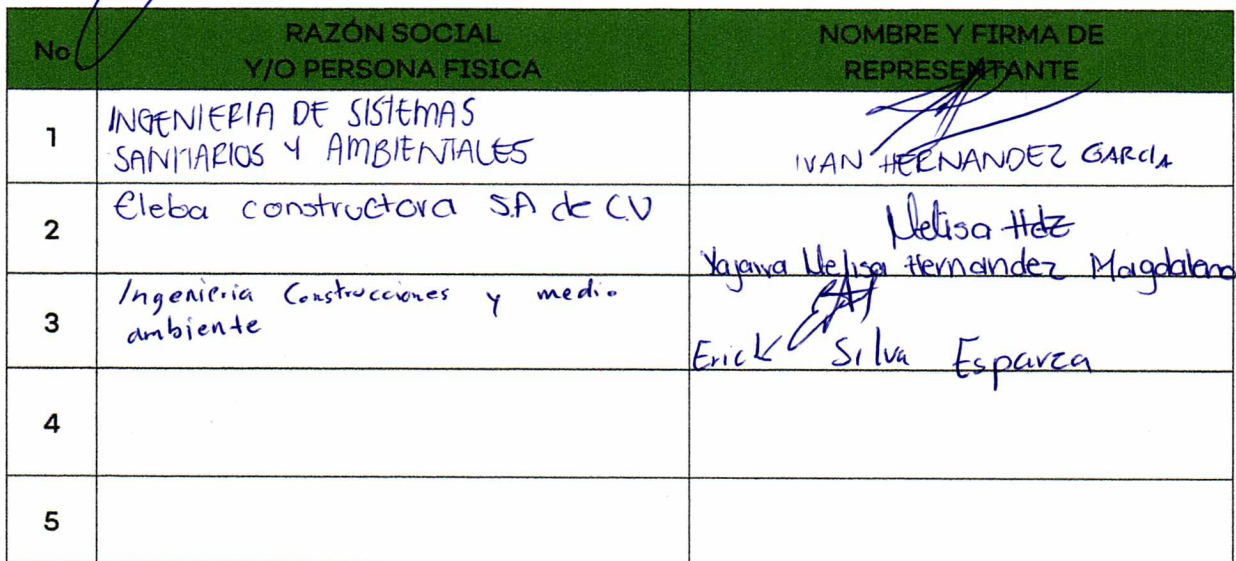 No
RAZÓN SOCIAL
Y/O PERSONA FISICA
NOMBRE Y FIRMA DE
REPRESENTANTE
1
INGENIERIA DE SISTEMAS
SANITARIOS Y AMBIENTALES
IVAN HERNANDEZ GARCIA
2
Eleba constructora S.A de C.V
Melisa Hdz
Yajaira Melisa Hernandez Magdaleno
3
Ingenieria Construcciones y medio
ambiente
Erick Silva Esparza
4
5